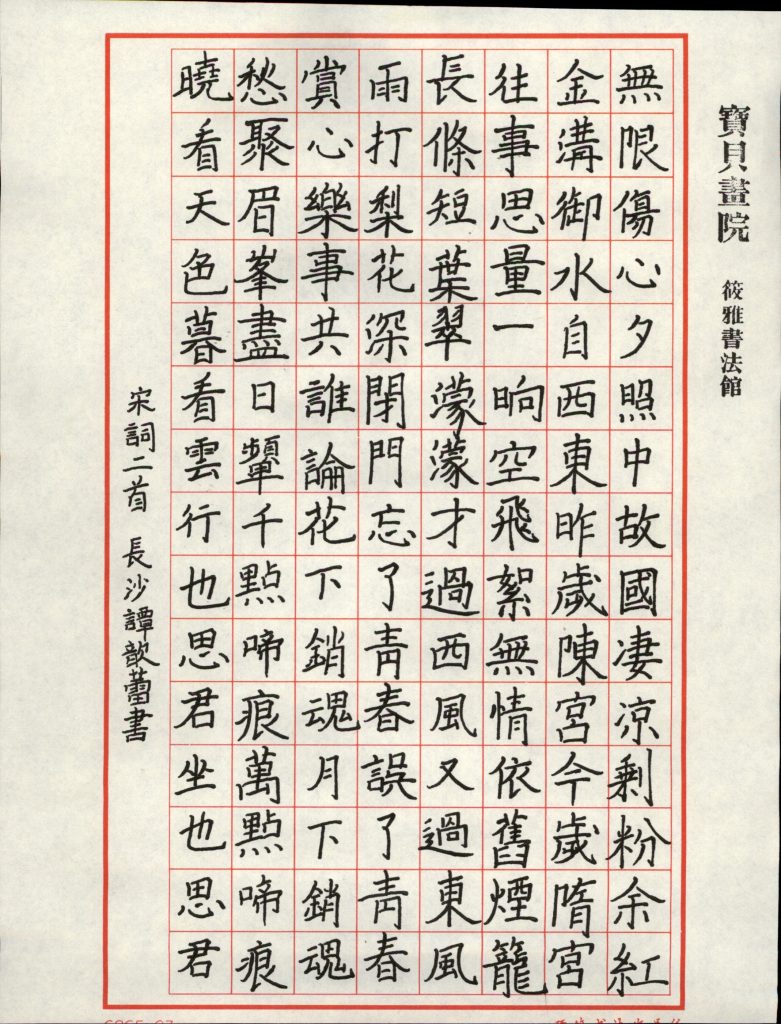 寶貝畫院 筱雅書法館
無限傷心夕照中故國凄涼剩粉余紅
金溝御水自西東昨歲陳宮今歲隋宮
往事思量一晌空飛絮無情依舊煙籠
長條短葉翠濛濛才過西風又過東風
雨打梨花深閉門忘了青春誤了青春
賞心樂事共誰論花下銷魂月下銷魂
愁聚眉峯盡日顰千點啼痕萬點啼痕
曉看天色暮看雲行也思君坐也思君
宋詞二首 長沙譚歆蕾書